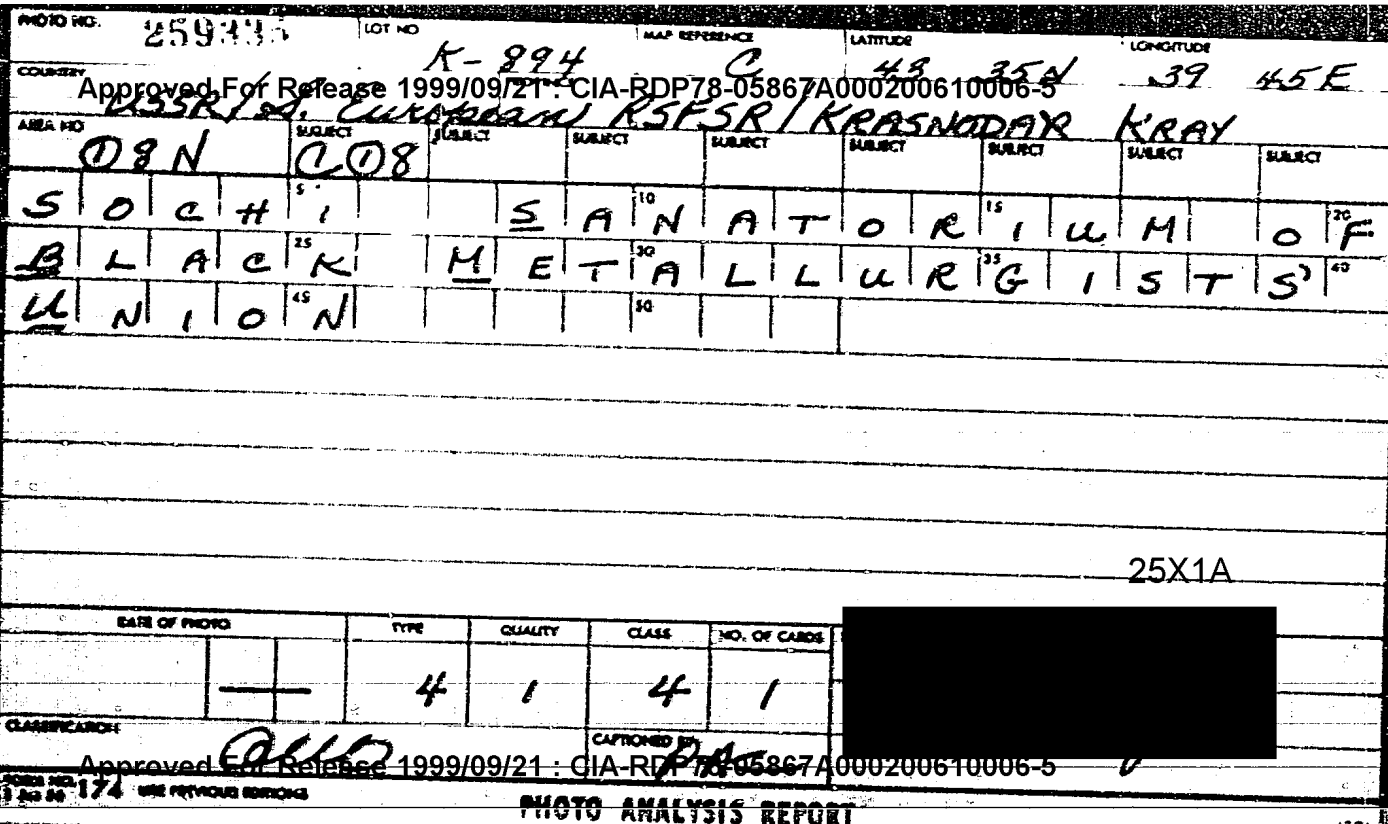 PHOTO NO. LOT NO MAP REFERENCE LATITUDE LONGITUDE
K-894 C 43 35N 39 45E
COUNTRY
Approved For Release 1999/09/21 : CIA-RDP78-05867A000200610006-5
USSR/S. European RSFSR/KRASNODAR KRAY
AREA NO SUBJECT SUBJECT SUBJECT SUBJECT SUBJECT SUBJECT SUBJECT SUBJECT
08N C08
SOCHI SANATORIUM OF
BLACK METALLURGISTS'
UNION
25X1A
DATE OF PHOTO TYPE QUALITY CLASS NO. OF CARDS
— 4 1 4 1
CLASSIFICATION CAPTIONED BY
Approved For Release 1999/09/21 : CIA-RDP78-05867A000200610006-5
FORM NO. 174 USE PREVIOUS EDITIONS
PHOTO ANALYSIS REPORT